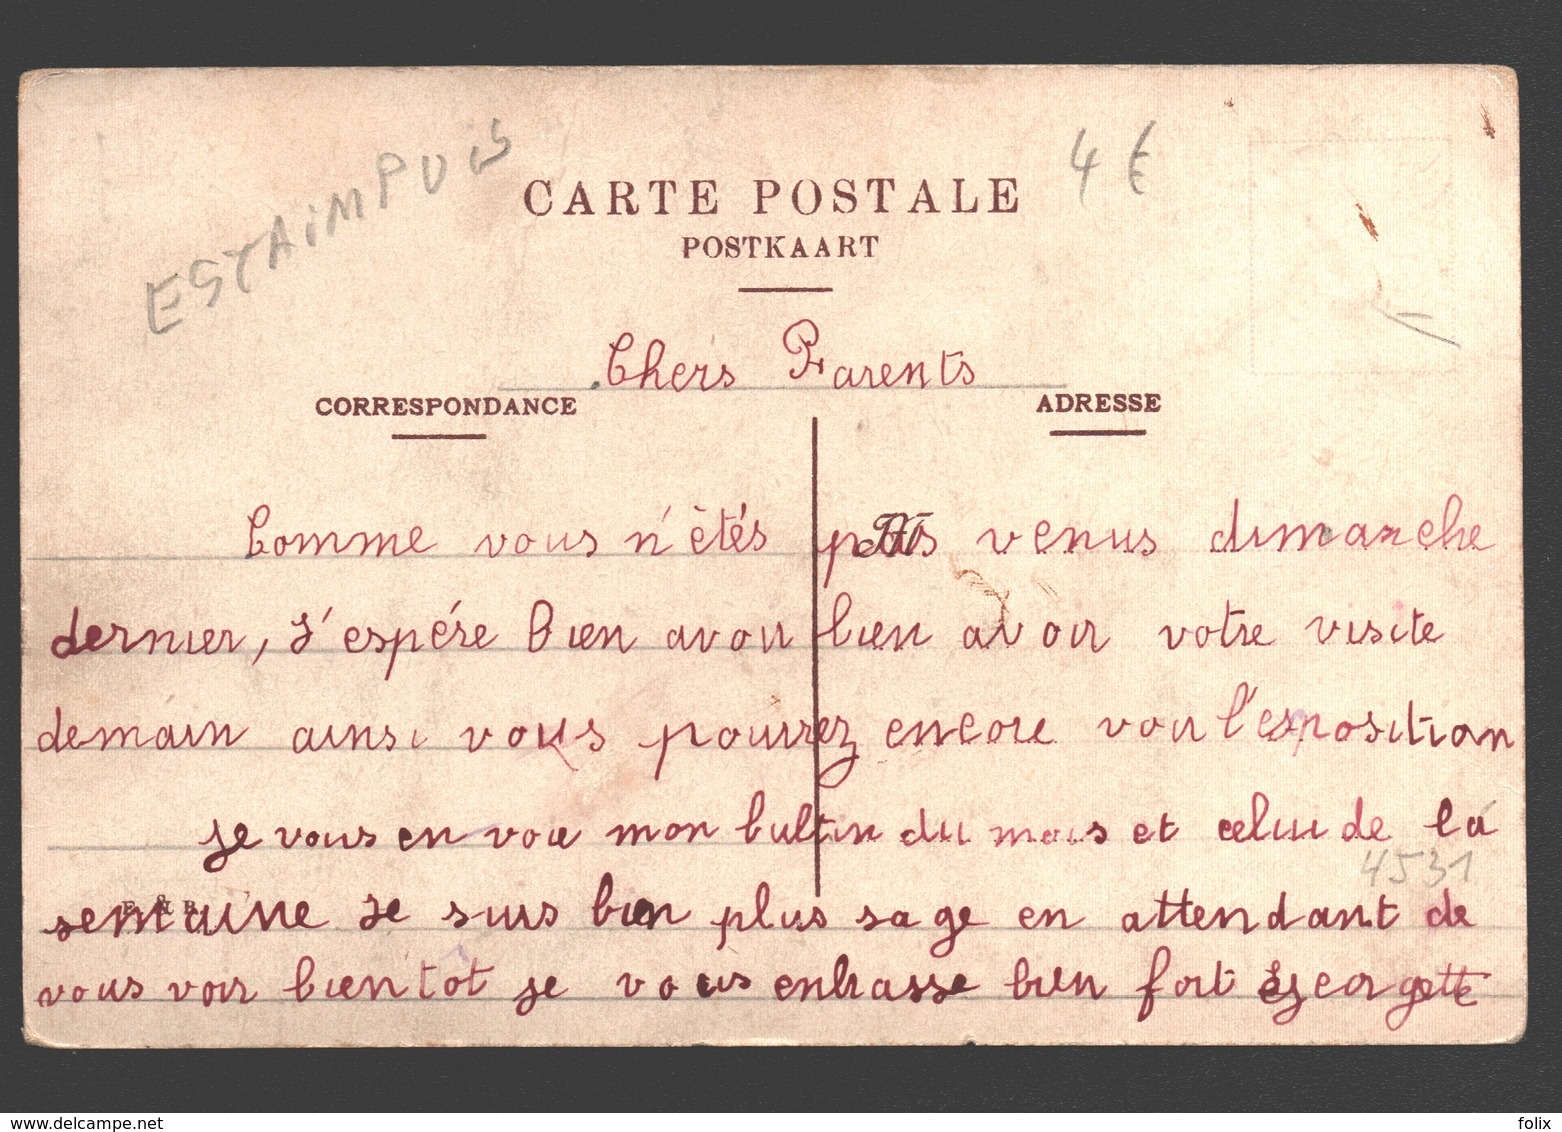 ESTAIMPUIS
4 €
CARTE POSTALE
POSTKAART
Chers Parents
CORRESPONDANCE
ADRESSE
Comme vous n'êtés pas venus dimanche
dernier, j'espére bien avoir bien avoir votre visite
demain ainsi vous pourrez encore voir l'exposition
je vous en voie mon bultin du mois et celui de la
4531
E & B
semaine je suis bien plus sage en attendant de
vous voir bientôt je vous enbrasse bien fort Georgette
delcampe.net
folix